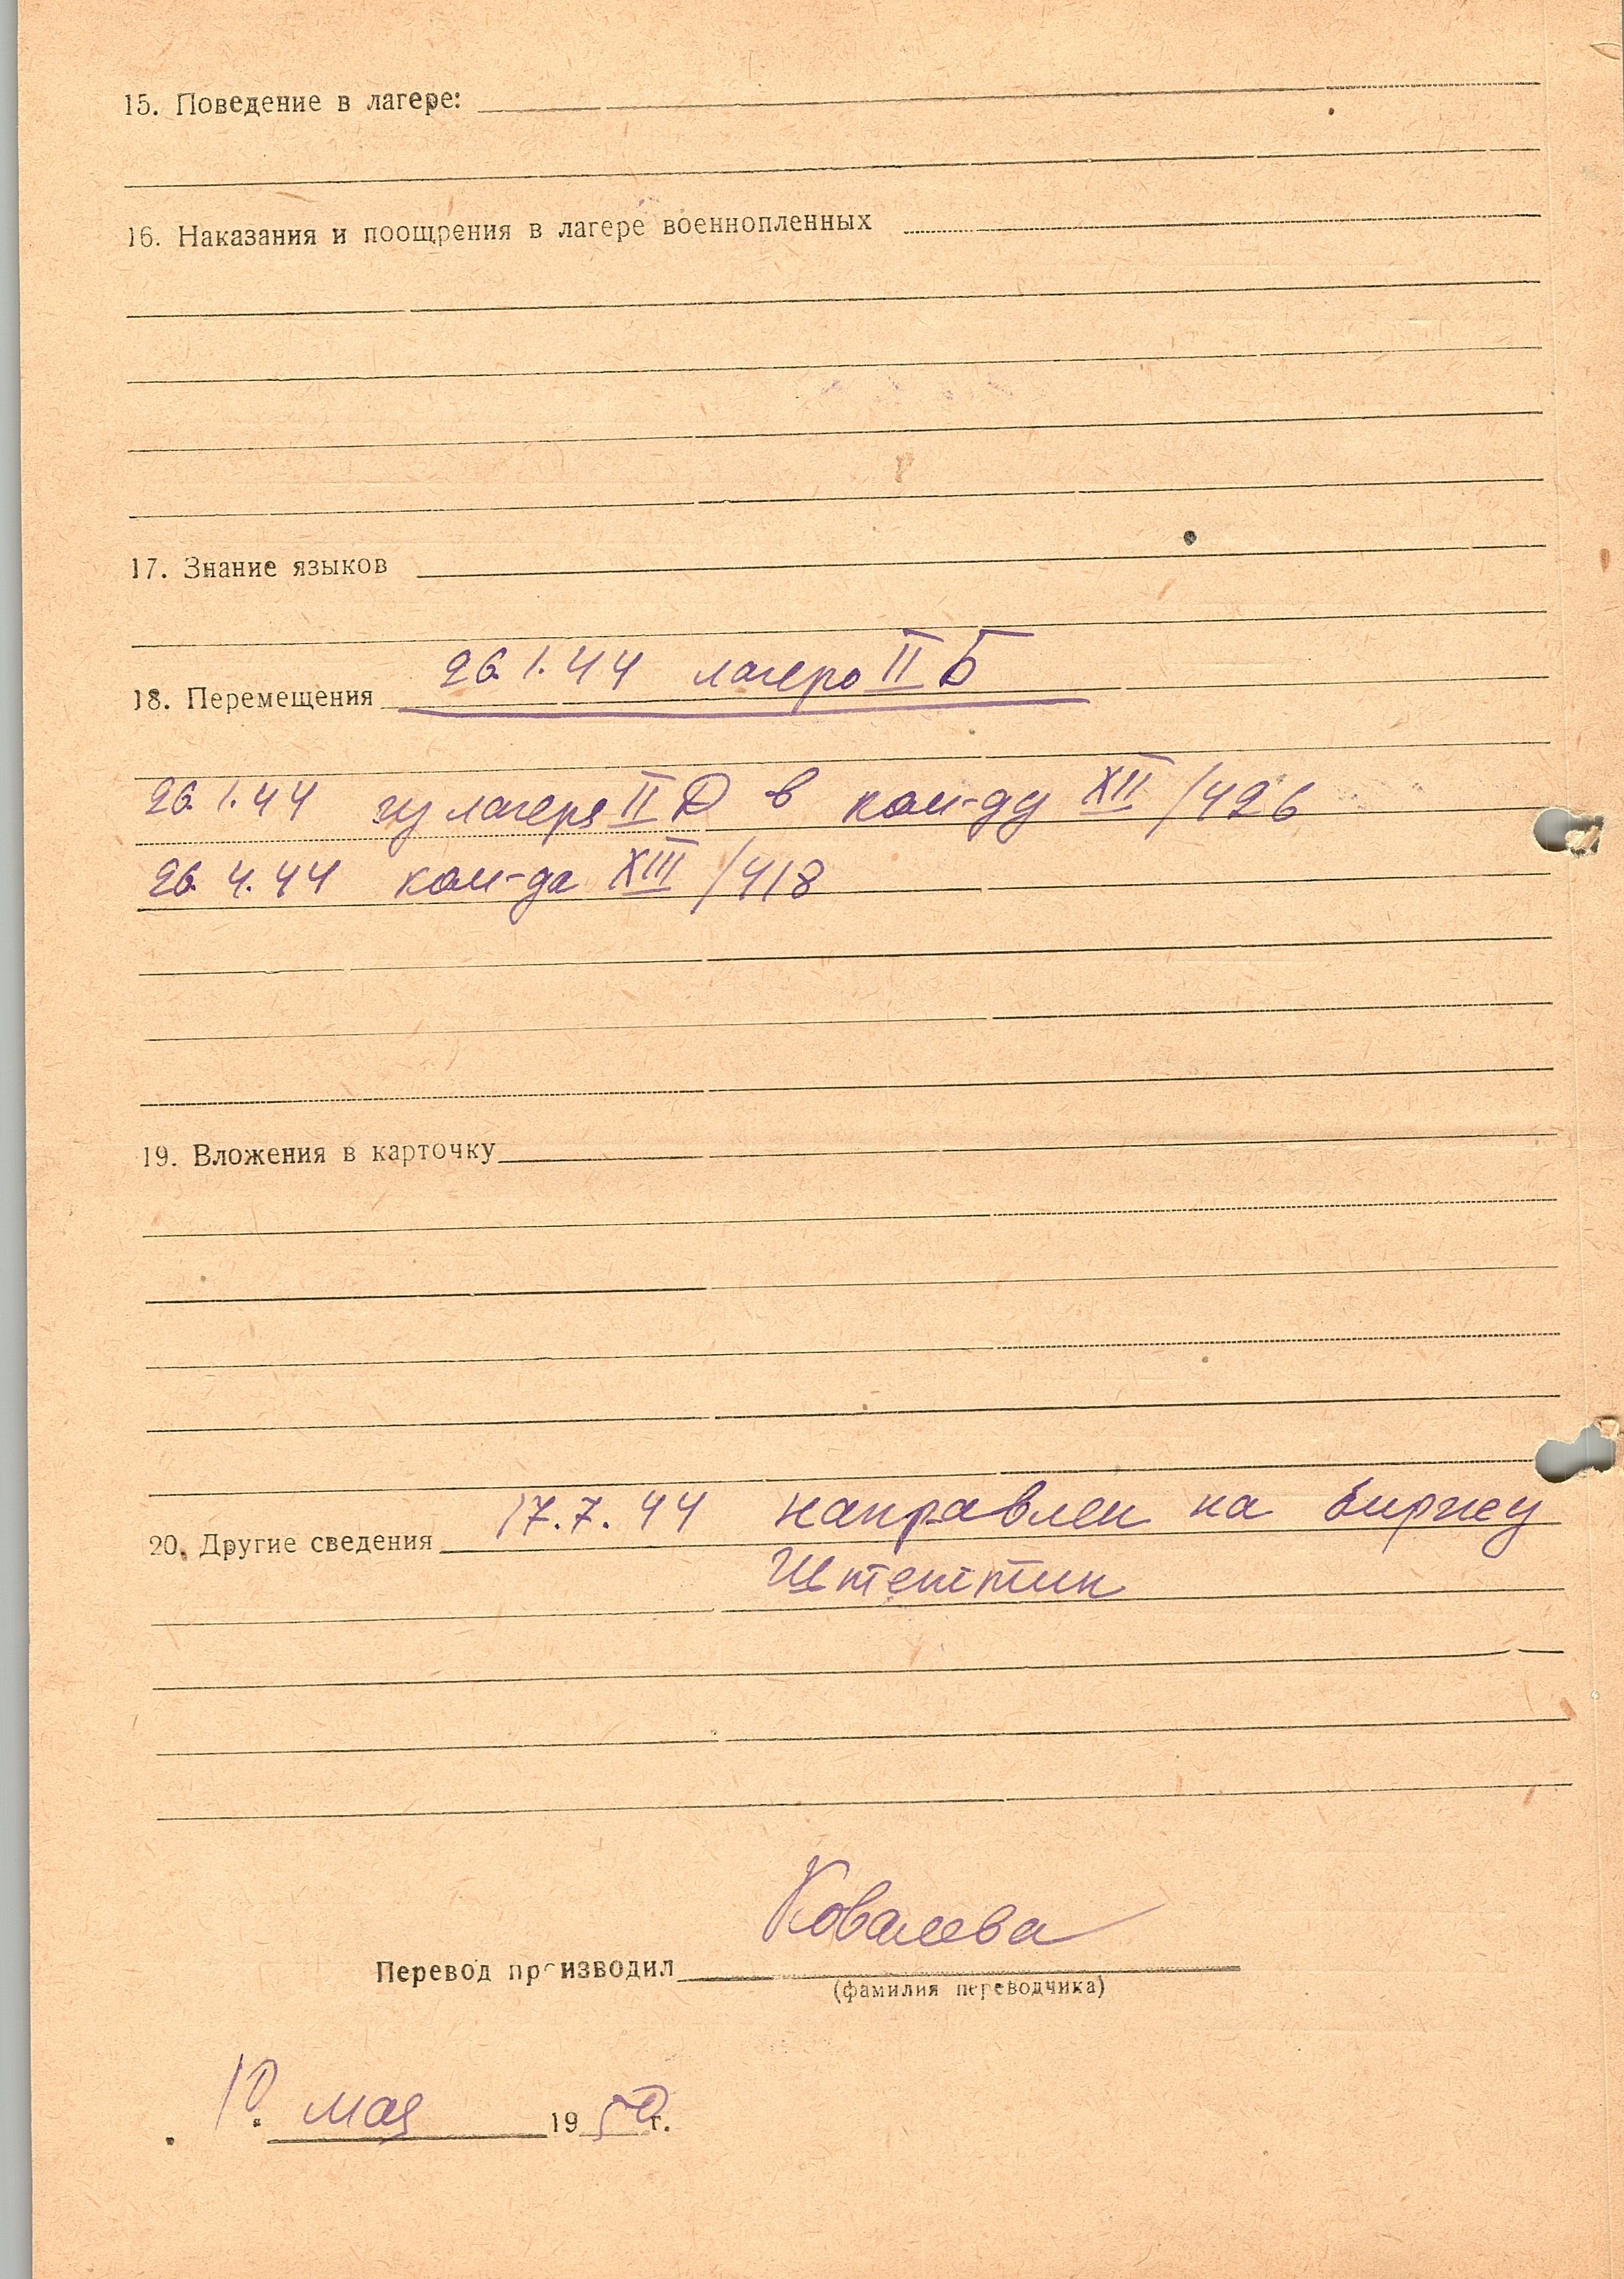 15. Поведение в лагере:
16. Наказания и поощрения в лагере военнопленных
17. Знание языков
18. Перемещения 26.1.44 лагерь II Б
26.1.44 из лагеря II Д в ком-ду XII /426
26.4.44 ком-да XIII /418
19. Вложения в карточку
20. Другие сведения 17.7.44 направлен на биржу
Штеттин
Ковалева
Перевод производил
(фамилия переводчика)
10 мая 1950 г.